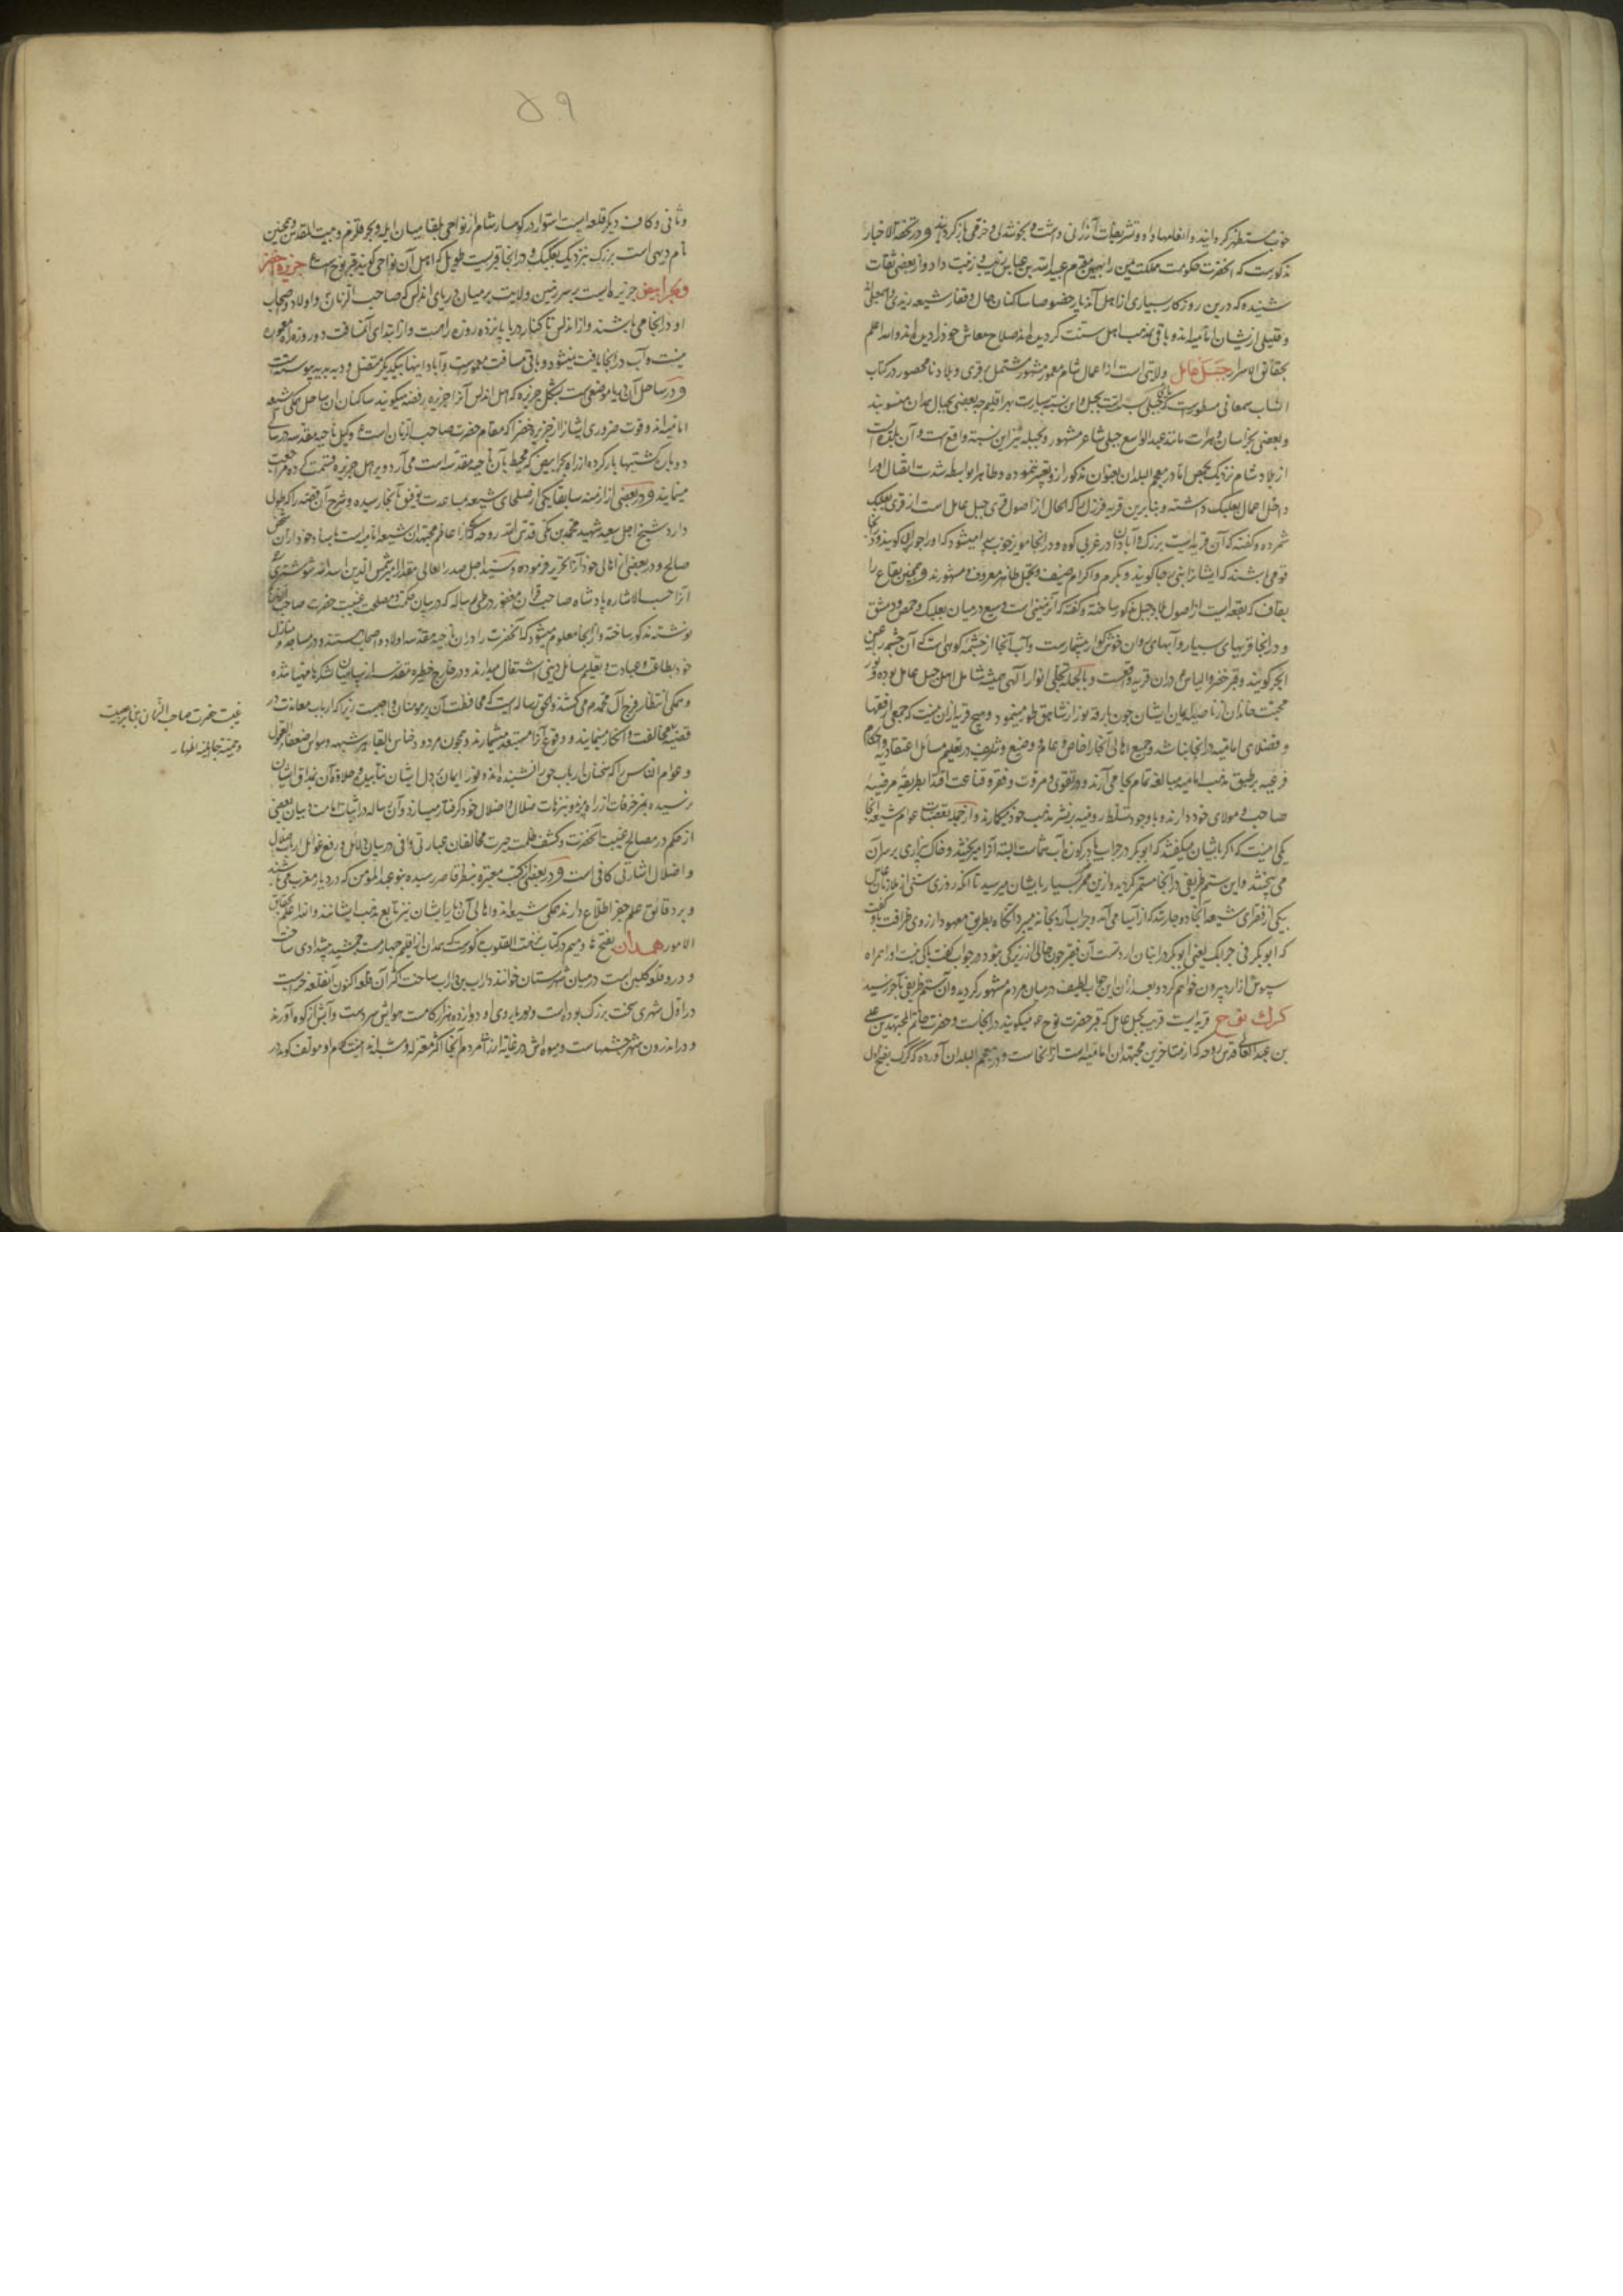 خوب مستظهر گردانیده و انعامها داد و تشریفات ارزانی داشت و بخوشدلی و خرمی بازگردانید و در تحفة الاخبار
مذکورست که آنحضرت حکومت مملکت یمن را بهمین بعبید الله بن عباس داد و از بعضی ثقات
شنیده که درین روزگار بسیاری از اهل آن دیار خصوصا ساکنان جبال و قفار شیعه زیدی و
و قلیلی ازیشان امامیه‌اند و باقی مذهب اهل سنت کرده‌اند صلاح معاش خود را دیده‌اند والله اعلم
بحقائق الاسرار جبل عامل ولایتی است از اعمال شام معمور مشهور مشتمل بر قری و بلاد نامحصور در کتاب
انساب سمعانی مسطورست که جبلی نسبت است بجبل و این نسبت بسیارست بهر اقلیم چه بعضی بجبال همدان منسوبند
و بعضی بخراسان و هرات مانند عبدالواسع جبلی شاعر مشهور و بجبله نیز این نسبة واقع است و آن بلده است
از بلاد شام نزدیک بحمص اما در معجم البلدان بعنوان مذکور ازو تعبیر ننموده و ظاهرا بواسطه شدت اتصال او را
داخل اعمال بعلبک داشته و بنابرین قریه فرزل را که الحال از اصول قری جبل عامل است از قری بعلبک
شمرده و گفته که آن قریه ایست بزرگ و آبادان در غربی کوه و در آنجا مویز خوب پیدا میشود که او را جوزانی گویند و در آنجا
قومی باشند که ایشانرا بنی رجا گویند و بکرم و اکرام ضیف و تجمل ظاهر معروف و مشهورند و همچنین بقاع را
بقاف که بقعه ایست از اصول بلاد جبل مذکور ساخته و گفته که آن زمینی است وسیع در میان بعلبک و حمص و دمشق
و در آنجا قریهای بسیار و آبهای روان خوشگوار بیشمارست و آب آنجا از چشمه کوهی است که آن چشمه را عین
الجر گویند و قبر حضر الیاس ع در ان قریه واقعست و بالجمله تجلی انوار الهی همیشه شامل اهل جبل عامل بوده و نور
محبت خاندان از ناصیه ایمان ایشان چون بارقه نور از شاهق طور مینمود و هیچ قریه از ان نیست که جمعی از فقها
و فضلای امامیه در آنجا نباشد و جمیع اهالی آنجا از خاص و عام و وضیع و شریف در تعلیم مسائل اعتقادیه و احکام
فرعیه بر طبق مذهب امامیه مبالغه تمام بجا می آرند و در تقوی و مروت و فقر و قناعت اقتدا بطریقه مرضیه
صاحب و مولای خود دارند و با وجود تسلط رومیه بر نشر مذهب خود میکارند و از جمله تعصبات عوام شیعه آنجا
یکی اینست که اگر بایشان میگفتند که ابوبکر در جراب یا در کوزه آب شماست البته آنرا میریختند و خاک بزاری بر سر آن
می بیختند و این ستم ظریفی در آنجا مستمر گردید و ازین ممر بسیار بایشان میرسید تا آنکه روزی سنی از ملازمان
بیکی از فقرای شیعه آنجا دوچار شد که از آسیا می آمد و جراب آرد بخانه میبرد آنگاه بطریق معهود از روی ظرافت باو گفت
که ابوبکر فی جرابک یعنی ابوبکر در انبان آرد تست آن فقیر چون خالی از زیرکی نبود در جواب گفت باکی نیست او را همراه
سپوش از آرد بیرون خواهم کرد و بعد از ان این جواب لطیف در میان مردم مشهور گردید و آن ستم ظریفی بآخر رسید
کرک نوح قریه ایست قریب بجبل عامل که قبر حضرت نوح ع میگویند در آنجاست و حضرت خاتم المجتهدین علی
بن عبد العالی قدس روحه که از متاخرین مجتهدان امامیه است از آنجاست و در معجم البلدان آورده که کرک بفتح اول
۵۹
و ثانی و کاف دیگر قلعه ایست استوار در کوهسار شام از نواحی بلقا میان ایله و بحر قلزم و بیت المقدس و همچنین
نام دیهی است بزرگ نزدیک بعلبک و در انجا قبریست طویل که اهل آن نواحی گویند قبر نوح است ع جزیره اخضر
و بحر ابیض جزیره ایست بر سرزمین ولایت بربر میان دریای اندلس که صاحب الزمان ع و اولاد و اصحاب
او در انجا می باشند و از اندلس تا کنار دریا پانزده روزه راهست و از ابتدای آن مسافت دو روزه راه معموره
نیست و آب در انجا یافت نمیشود و باقی مسافت معمورست و آبادانیها بیکدیگر متصل و دیه بدیه پیوسته است
و در ساحل آن دریا موضعی است بشکل جزیره که اهل اندلس آنرا جزیره رفضه میگویند ساکنان ان ساحل همگی شیعه
امامیه‌اند و قوت ضروری ایشانرا از جزیره خضرا که مقام حضرت صاحب الزمان است ع وکیل ناحیه مقدسه در سالی
دو بار کشتیها بار کرده از راه بحر ابیض که محیط بآن ناحیه مقدسه است می آرد و بر اهل جزیره قسمت کرده مراجعت
مینمایند و در بعضی از ازمنه سابقا یکی از صلحای شیعه بمساعدت توفیق بانجا رسیده و شرح آن قصه را که طولی
دارد شیخ اجل سعید شهید محمد بن مکی قدس الله روحه که از اعاظم مجتهدان شیعه امامیه است باسناد خود از آن شخص
صالح در بعضی از امالی خود آنرا تحریر فرموده و سید اجل صدر العالی مقدار میر شمس الدین اسد الله شوشتری
آنرا حسب الاشاره پادشاه صاحب قران مغفور در طی رساله که در بیان حکمت و مصلحت غیبت حضرت صاحب الزمان
نوشته مذکور ساخته و از آنجا معلوم میشود که آنحضرت را در ان ناحیه مقدسه اولاد و اصحاب هستند و در مساجد و منازل
خود بطاعت و عبادت و تعلیم مسائل دینی اشتغال میدارند و در خارج حظیره مقدسه از سپاهیان لشکرها مهیا شده
و همگی انتظار فرج آل محمد ع می کشند و الحق آن رساله ایست که محافظت آن بر مومنان واجبست زیرا که ارباب معاندت در
قضیه مخالفت و انکار مینمایند و وقوع آنرا مستبعد میشمارند و همچون مردود خناس بالقای شبهه و وسواس ضعفاء العقول
و عوام الناس را که سخنان ارباب حق را نشنیده‌اند و نور ایمان بدل ایشان نتابیده و حلاوة آن بمذاق ایشان
نرسیده بمزخرفات از راه میبرند و بترهات ضلال و اضلال خود گرفتار میسازند و آن رساله در اثبات امامت و بیان بعضی
از حکم در مصالح غیبت آنحضرت و کشف ظلمت حیرت مخالفان عبارتی وافی در بیان دلائل و رفع غوائل ارباب ضلال
و اضلال اشارتی کافی است و در بعضی از کتب معتبره بنظر قاصر رسیده بنو عبدالمؤمن که در دیار مغرب می باشند
و بر دقائق علم جفر اطلاع دارند همگی شیعه‌اند و اهالی آن دیار ایشان نیز تابع مذهب ایشانند والله اعلم بحقائق
الامور همدان بفتح ها و میم در کتاب نزهت القلوب مذکورست که همدان از اقلیم چهارمست جمشید پیشدادی ساخت
و درو قلعه گلین است در میان شهرستان خوانند دارا بن داراب ساخت اکثر آن قلعه اکنون آنقلعه خرابست
در اول شهری سخت بزرگ بوده است و دور باروی او دوازده هزار گامست هوایش سردست و آبش از کوه آورند
و در اندرون شهر چشمهاست و میوه اش در غایة ارزانی مردم آنجا اکثر معتزله و مشبه‌اند اینست کلام او مولف گوید در
غیبت حضرت صاحب الزمان بنابر